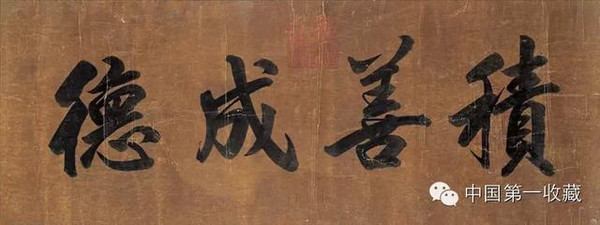 積善成德
中国第一收藏